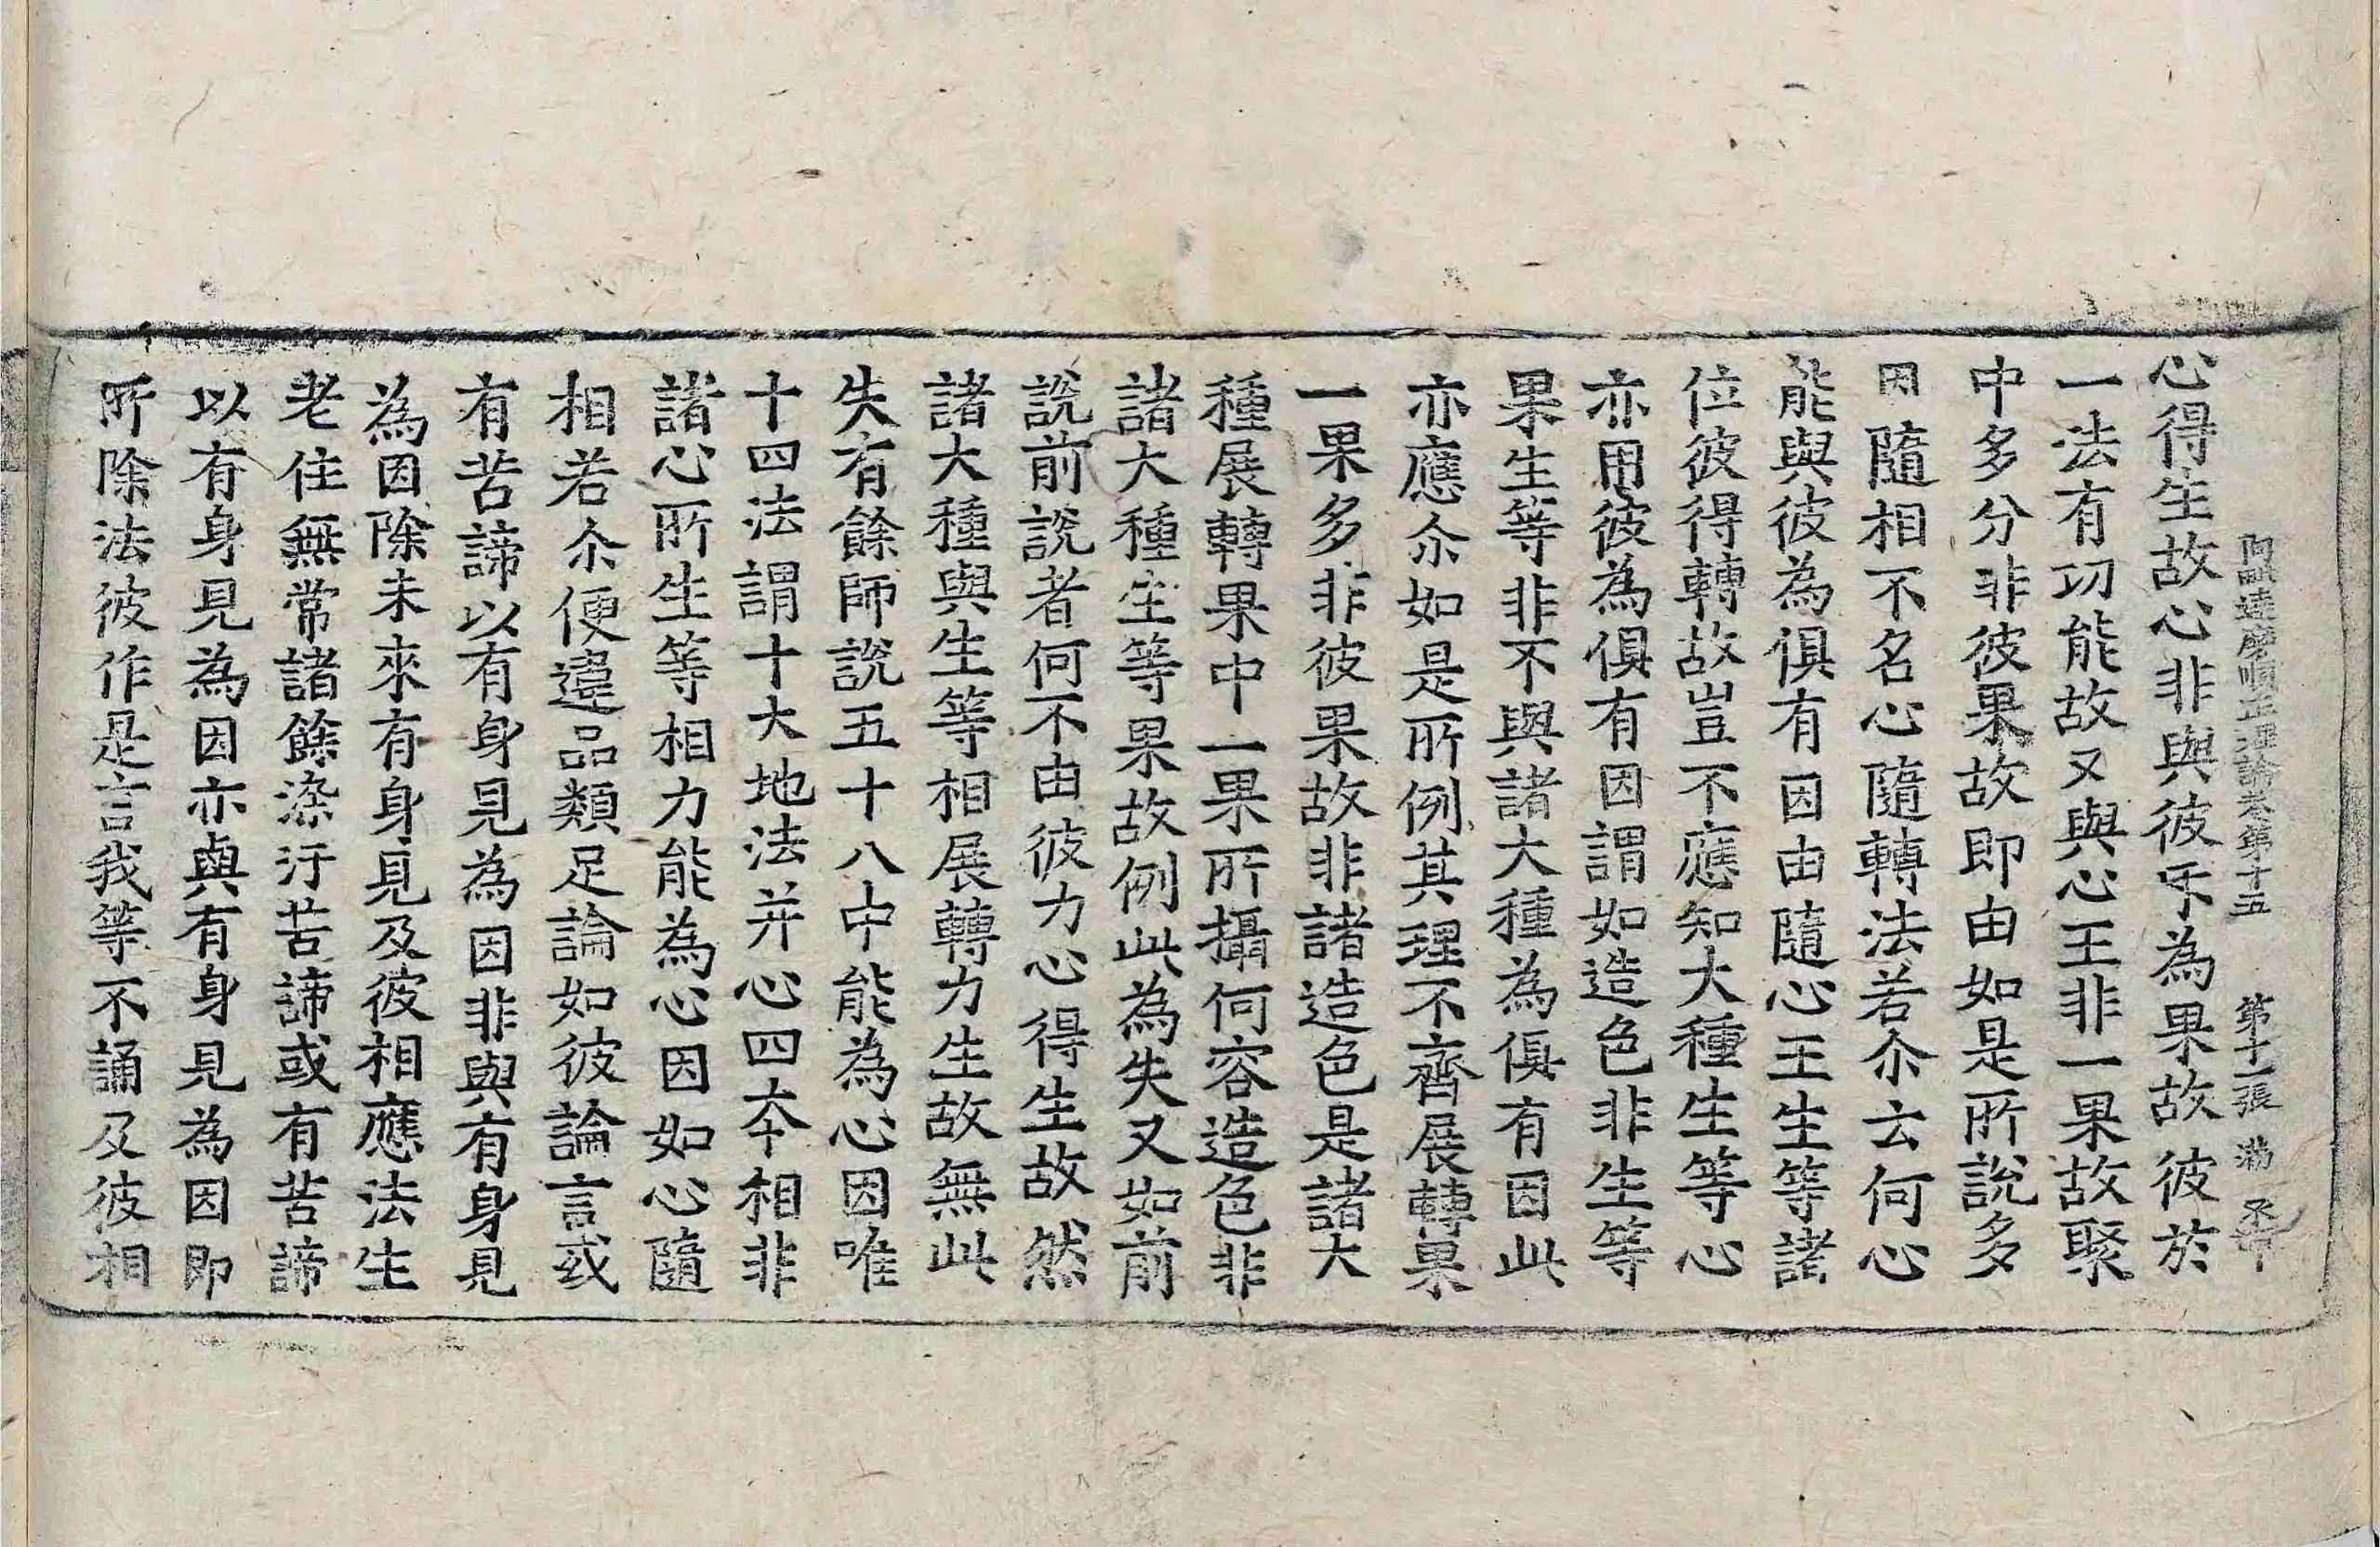 阿毗達磨順正理論卷第十五　第十一張　滿
心得生故心非與彼㸦為果故彼於
一法有功能故又與心王非一果故聚
中多分非彼果故即由如是所說多
因隨相不名心隨轉法若尒云何心
能與彼為俱有因由隨心王生等諸
位彼得轉故豈不應知大種生等心
亦用彼為俱有因謂如造色非生等
果生等非不與諸大種為俱有因此
亦應尒如是所例其理不齊展轉果
一果多非彼果故非諸造色是諸大
種展轉果中一果所攝何容造色非
諸大種生等果故例此為失又如前
說前說者何不由彼力心得生故然
諸大種與生等相展轉力生故無此
失有餘師說五十八中能為心因唯
十四法謂十大地法并心四夲相非
諸心所生等相力能為心因如心隨
相若尒便違品類足論如彼論言或
有苦諦以有身見為因非與有身見
為因除未來有身見及彼相應法生
老住無常諸餘染汙苦諦或有苦諦
以有身見為因亦與有身見為因即
所除法彼作是言我等不誦及彼相